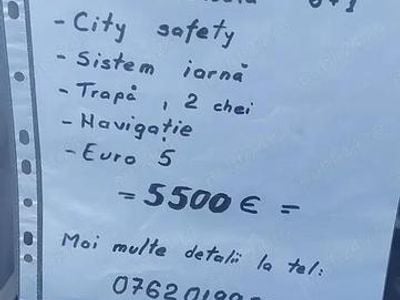 6+1
- City safety
- Sistem iarnă
- Trapă, 2 chei
- Navigație
- Euro 5
= 5500 € =
Mai multe detalii la tel: